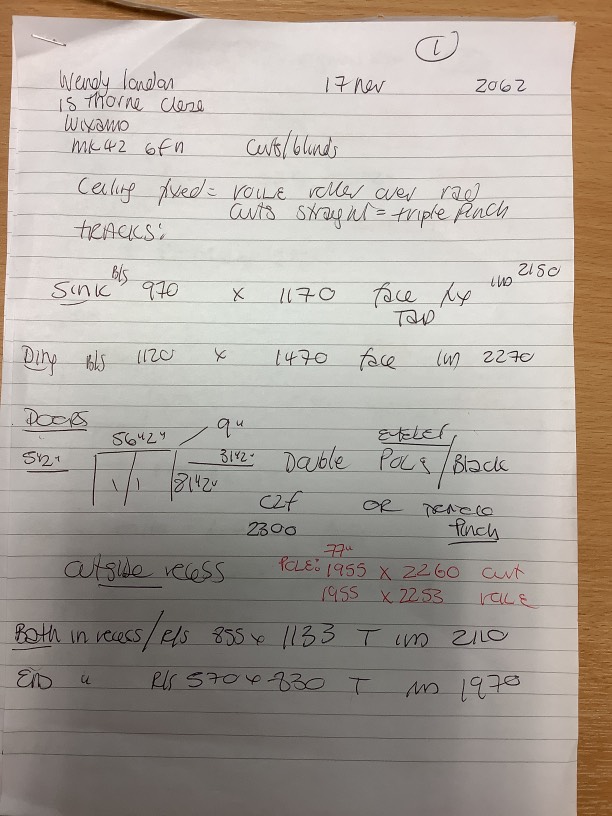 1
Wendy london 17 nov 2062
15 Thorne Close
Wixams
MK42 6FN Curts/blinds
Ceiling fixed = VOILE roller over rad
Curts straight = triple Pinch
TRACKS:
Sink B/s 970 x 1170 face fix 2150
B/s 1120 x 1470 face 2270
DOORS
56"42" 9"
31"42" Double EYELET POLE / Black
81"42"
C2f OR Pinch
2300
Outside recess
77"
POLE: 1955 x 2260 curt
1955 x 2253 VOILE
Both in recess / R/s 855 x 1133 T 2110
END " R/s 570 x 830 T 1970